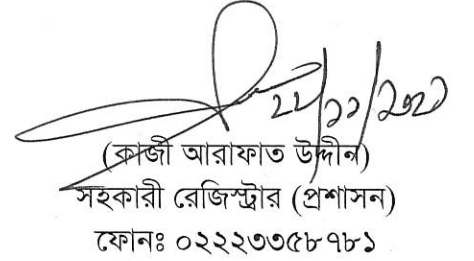 (কাজী আরাফাত উদ্দীন)
সহকারী রেজিস্ট্রার (প্রশাসন)
ফোনঃ ০২২২৩৩৫৮৭৮১